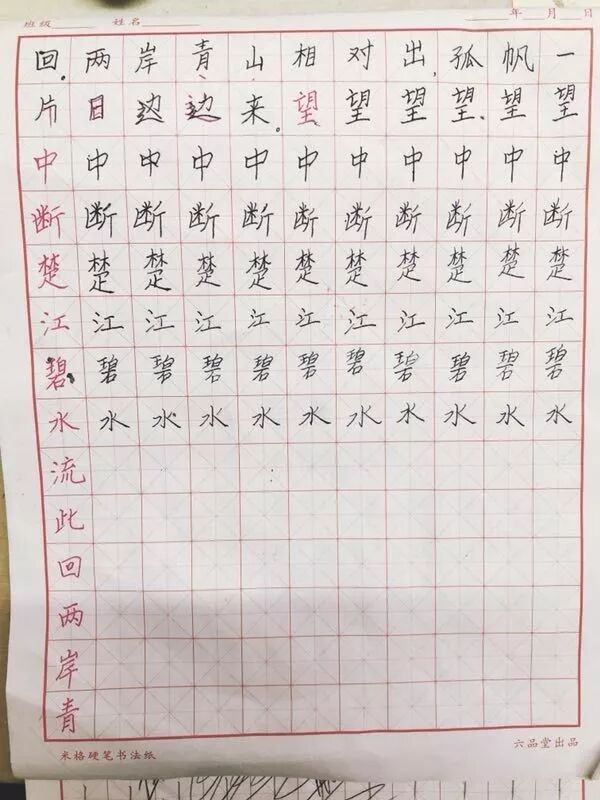 班级 姓名 年 月 日
回。两岸青山相对出,孤帆一
片日边边来。望望望望望望
中中中中中中中中中中中
断断断断断断断断断断断
楚楚楚楚楚楚楚楚楚楚楚
江江江江江江江江江江江
碧碧碧碧碧碧碧碧碧碧碧
水水水水水水水水水水水
流
此
回
两
岸
青
米格硬笔书法纸 六品堂出品